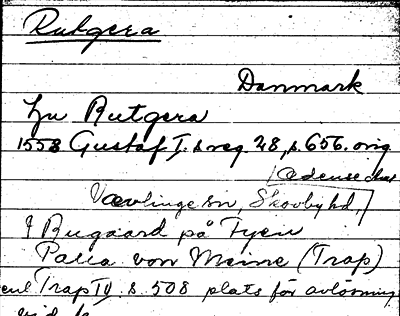 Rutgera
Danmark
hu Rutgera
1558 Gustaf I. s reg. 28, s. 656. orig
[Odense
Vævlinge sn, Skovby hd,]
på Fyen
von Meine (Trap)
enl Trap IV. s. 508 plats för avlösning